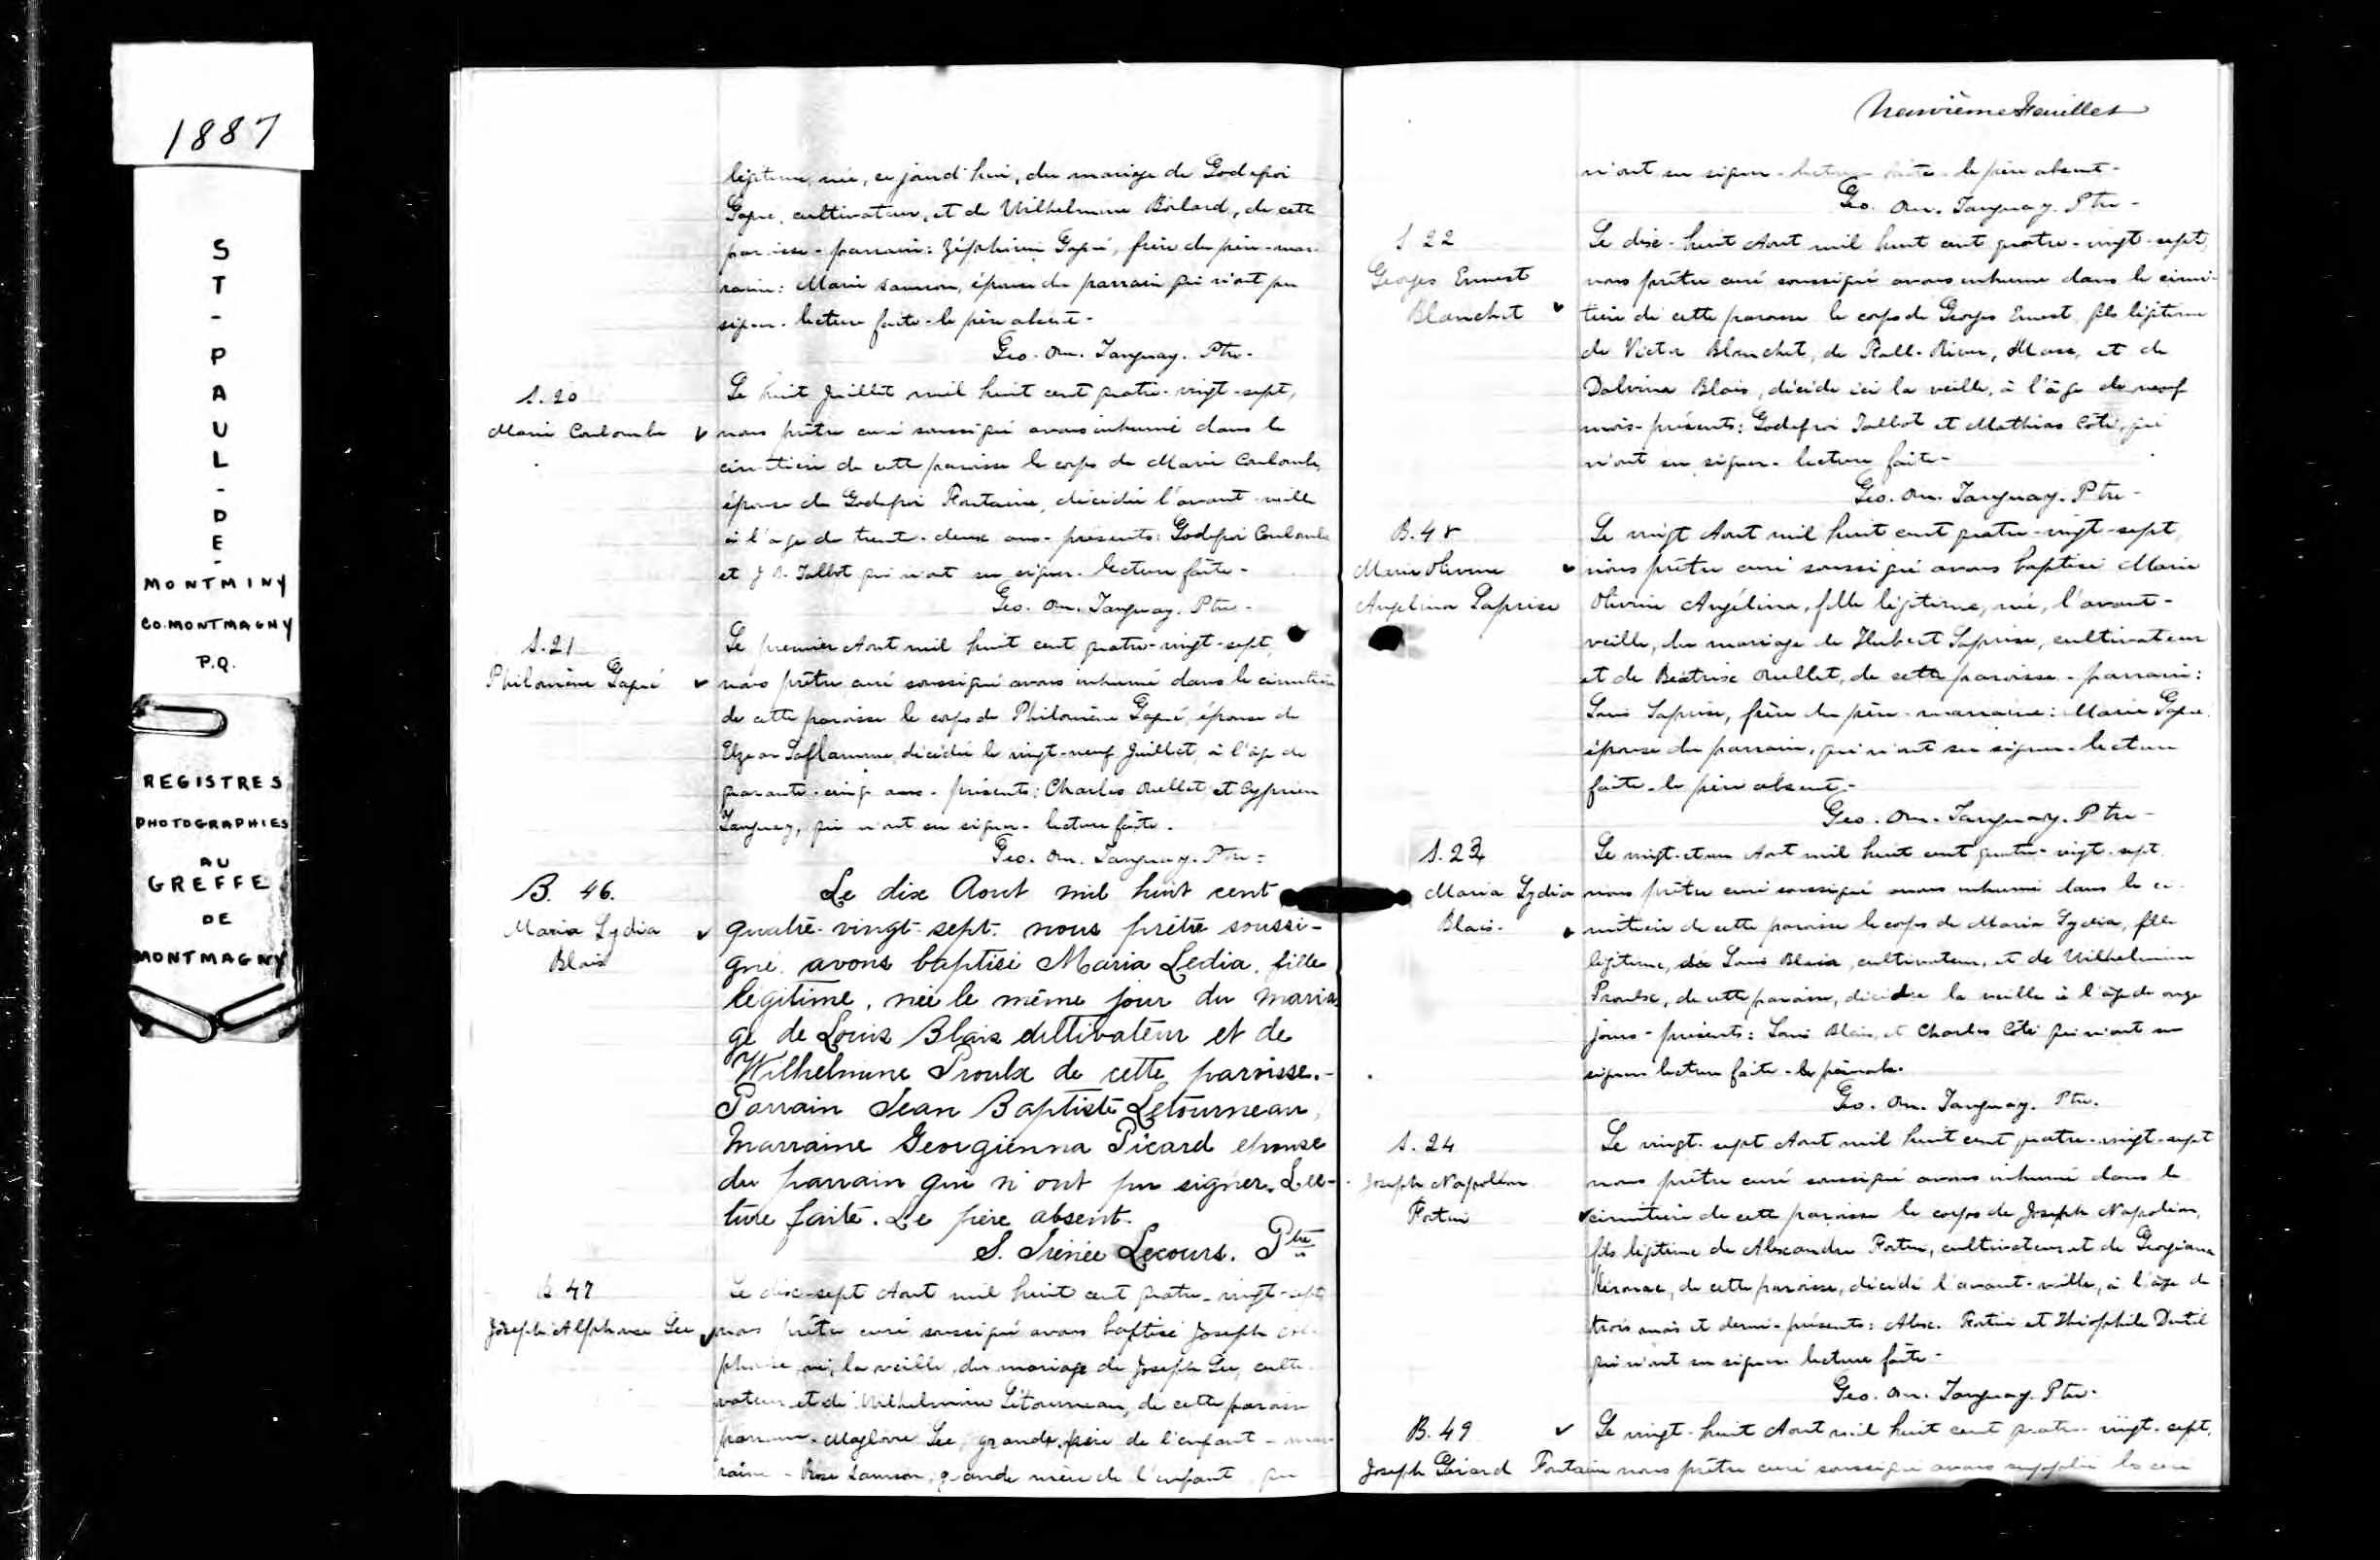 1887
ST-PAUL-DE-
MONTMINY
CO. MONTMAGNY
P.Q.
REGISTRES
PHOTOGRAPHIES
AU
GREFFE
DE
MONTMAGNY
légitime, née, ce jourd'hui, du mariage de Godefroi
Gagné, cultivateur, et de Wilhelmine Boilard, de cette
paroisse - parrain: Zéphirin Gagné, frère du père - mar-
raine: Marie Samson, épouse du parrain qui n'ont pu
signer. lecture faite - le père absent -
Geo. On. Tanguay. Ptre -
S. 20
Marie Coulombe
Le huit Juillet mil huit cent quatre-vingt-sept,
nous prêtre curé soussigné avons inhumé dans le
cimetière de cette paroisse le corps de Marie Coulombe,
épouse de Godefroi Fontaine, décédée l'avant-veille
à l'âge de trente-deux ans - présents: Godefroi Coulombe
et J. B. Talbot qui n'ont su signer. lecture faite -
Geo. On. Tanguay. Ptre -
S. 21
Philomène Gagné
Le premier Aout mil huit cent quatre-vingt-sept,
nous prêtre curé soussigné avons inhumé dans le cimetière
de cette paroisse le corps de Philomène Gagné, épouse de
Elzear Laflamme décédée le vingt-neuf Juillet, à l'âge de
quarante-cinq ans - présents: Charles Ouellet et Cyprien
Tanguay, qui n'ont su signer - lecture faite.
Geo. On. Tanguay. Ptre -
B. 46.
Maria Lydia
Blais
Le dix Aout mil huit cent
quatre-vingt-sept. nous prêtre soussi-
gné avons baptisé Maria Ledia, fille
légitime, née le même jour du maria
ge de Louis Blais cultivateur et de
Wilhelmine Proulx de cette paroisse.-
Parrain Jean Baptiste Letourneau,
Marraine Georgienna Picard epouse
du parrain qui n'ont pu signer. Lec-
ture faite. Le père absent.
S. Irénée Lecours. Ptre
B. 47
Joseph Alphonse Lee
Le dix-sept Aout mil huit cent quatre-vingt-sept
nous prêtre curé soussigné avons baptisé Joseph Al-
phonse né, la veille, du mariage de Joseph Lee, culti-
vateur et de Wilhelmine Létourneau, de cette paroisse
parrain - Magloire Lee, grand-père de l'enfant - mar-
raine - Rose Samson, grande mère de l'enfant, qui
Neuvième Feuillet
n'ont su signer - lecture faite - le père absent -
Geo. On. Tanguay. Ptre -
S 22
Georges Ernest
Blanchet
Le dix-huit Aout mil huit cent quatre-vingt-sept,
nous prêtre curé soussigné avons inhumé dans le cime-
tière de cette paroisse le corps de Georges Ernest, fils légitime
de Victor Blanchet, de Fall-River, Mass, et de
Dalvina Blais, décédé ici la veille, à l'âge de neuf
mois - présents: Godefroi Talbot et Mathias Côté, qui
n'ont su signer - lecture faite -
Geo. On. Tanguay. Ptre -
B. 48
Marie Olivine
Angélina Laprise
Le vingt Aout mil huit cent quatre-vingt-sept
nous prêtre curé soussigné avons baptisé Marie
Olivine Angélina, fille légitime, née, l'avant-
veille, du mariage de Hubert Laprise, cultivateur
et de Béatrix Ouellet, de cette paroisse - parrain:
Louis Laprise, frère du père - marraine: Marie Gagné
épouse du parrain, qui n'ont su signer - lecture
faite - le père absent -
Geo. On. Tanguay. Ptre -
S. 23
Maria Lydia
Blais.
Le vingt-et-un Aout mil huit cent quatre-vingt-sept
nous prêtre curé soussigné avons inhumé dans le ci-
metière de cette paroisse le corps de Maria Lydia, fille
légitime, de Louis Blais, cultivateur, et de Wilhelmine
Proulx, de cette paroisse, décédée la veille à l'âge de onze
jours - présents: Louis Blais, et Charles Côté qui n'ont su
signer lecture faite -
Geo. On. Tanguay. Ptre.
S. 24
Joseph Napoléon
Fortin
Le vingt-sept Aout mil huit cent quatre-vingt-sept
nous prêtre curé soussigné avons inhumé dans le
cimetière de cette paroisse le corps de Joseph Napoléon,
fils légitime de Alexandre Fortin, cultivateur et de Georgiana
Kérouac, de cette paroisse, décédé l'avant-veille, à l'âge de
trois mois et demi - présents: Alex. Fortin et Théophile Dutil
qui n'ont su signer - lecture faite -
Geo. On. Tanguay. Ptre -
B. 49
Joseph Gérard Fontaine
Le vingt-huit Aout mil huit cent quatre-vingt-sept,
nous prêtre curé soussigné avons suppléé les céré